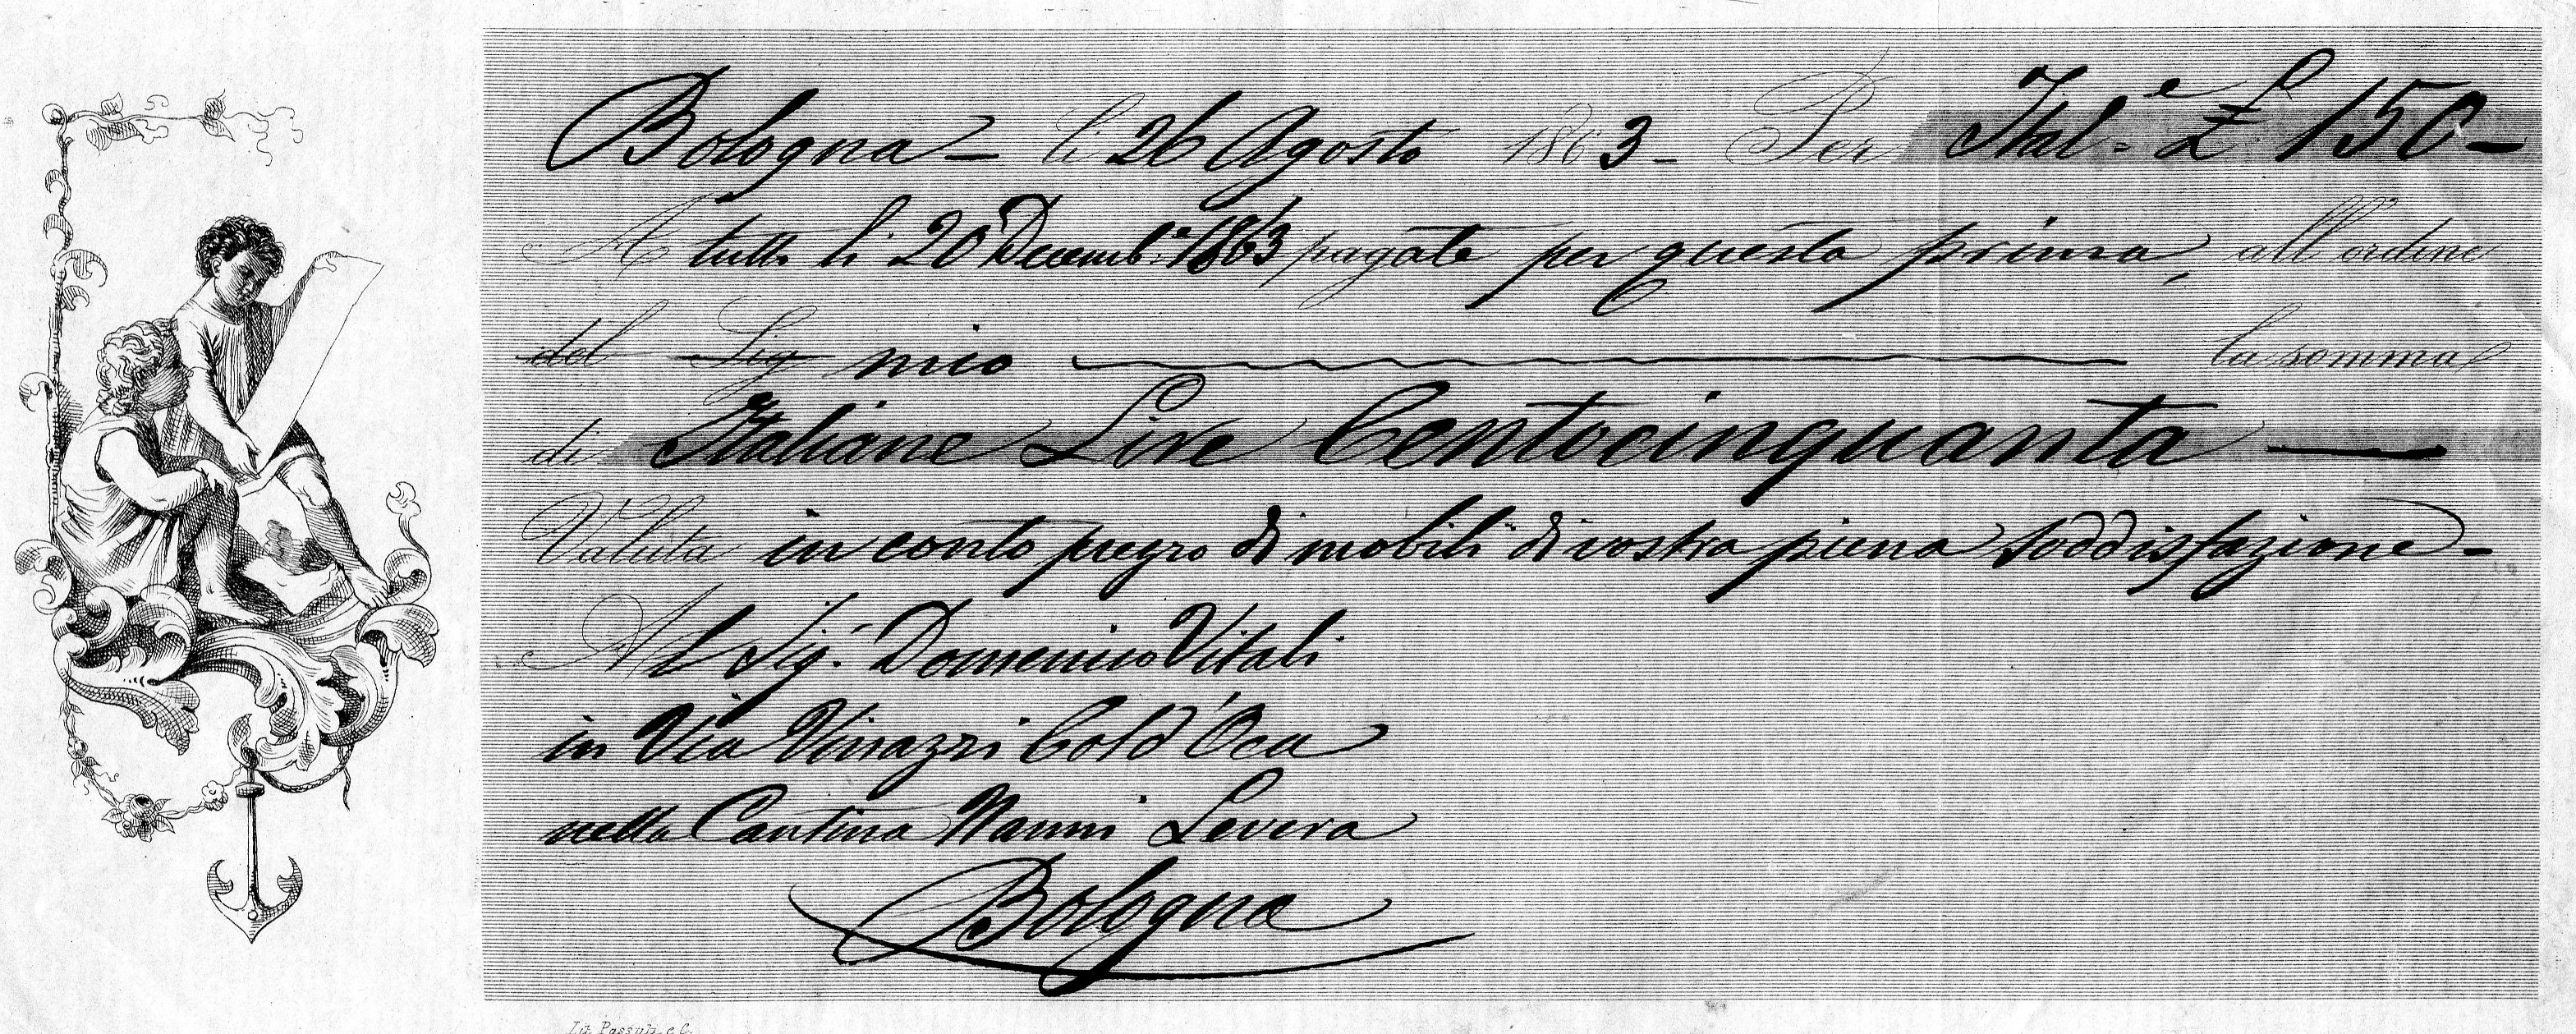 Bologna - li 26 Agosto 1863 - Per Ital.e £ 150 -
A tutto li 20 Decemb.e 1863 pagate per questa prima, all'ordine
del Sig mio la somma
di Italiane Lire Centocinquanta —
Valuta in conto prezzo di mobili di vostra piena soddisfazione -
Al Sig.r Domenico Vitali
in Via Vinazzi Col d'Oca
nella Cantina Nanni Levera
Bologna
Lit. Passuti e C.